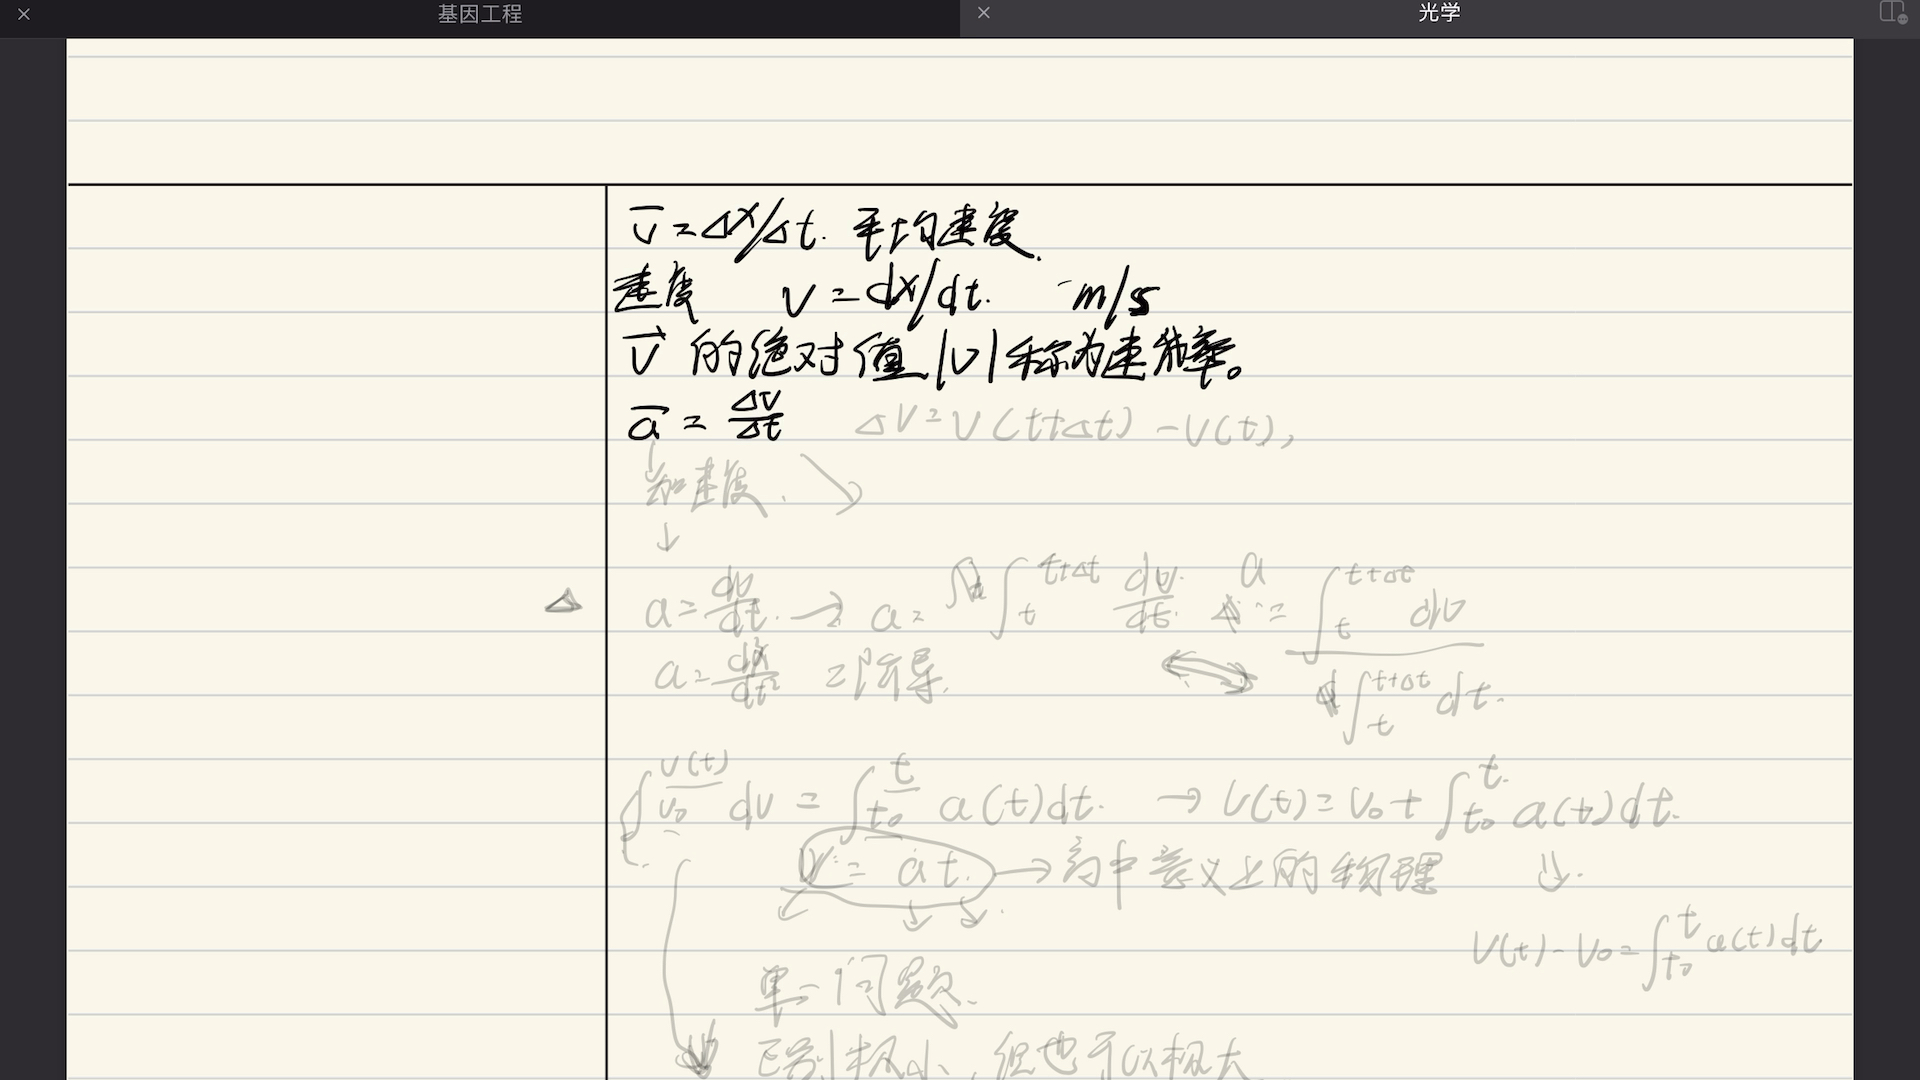 基因工程
光学
v̅ = Δx/Δt. 平均速度.
速度 v = dx/dt. m/s
v⃗ 的绝对值 |v| 称为速率。
a̅ = Δv/Δt ΔV = V(t+Δt) - V(t),
加速度.
a = dv/dt. → a = ∫ₜ^{t+Δt} dv/dt. a = ∫ₜ^{t+Δt} dv / ∫ₜ^{t+Δt} dt.
a = d²x/dt² 二阶导.
∫_{v₀}^{v(t)} dv = ∫_{t₀}^{t} a(t)dt. → v(t) = v₀ + ∫_{t₀}^{t} a(t)dt.
V = at. → 高中意义上的物理
V(t) - V₀ = ∫_{t₀}^{t} a(t)dt
单一问题.
区别极小, 但也可以极大